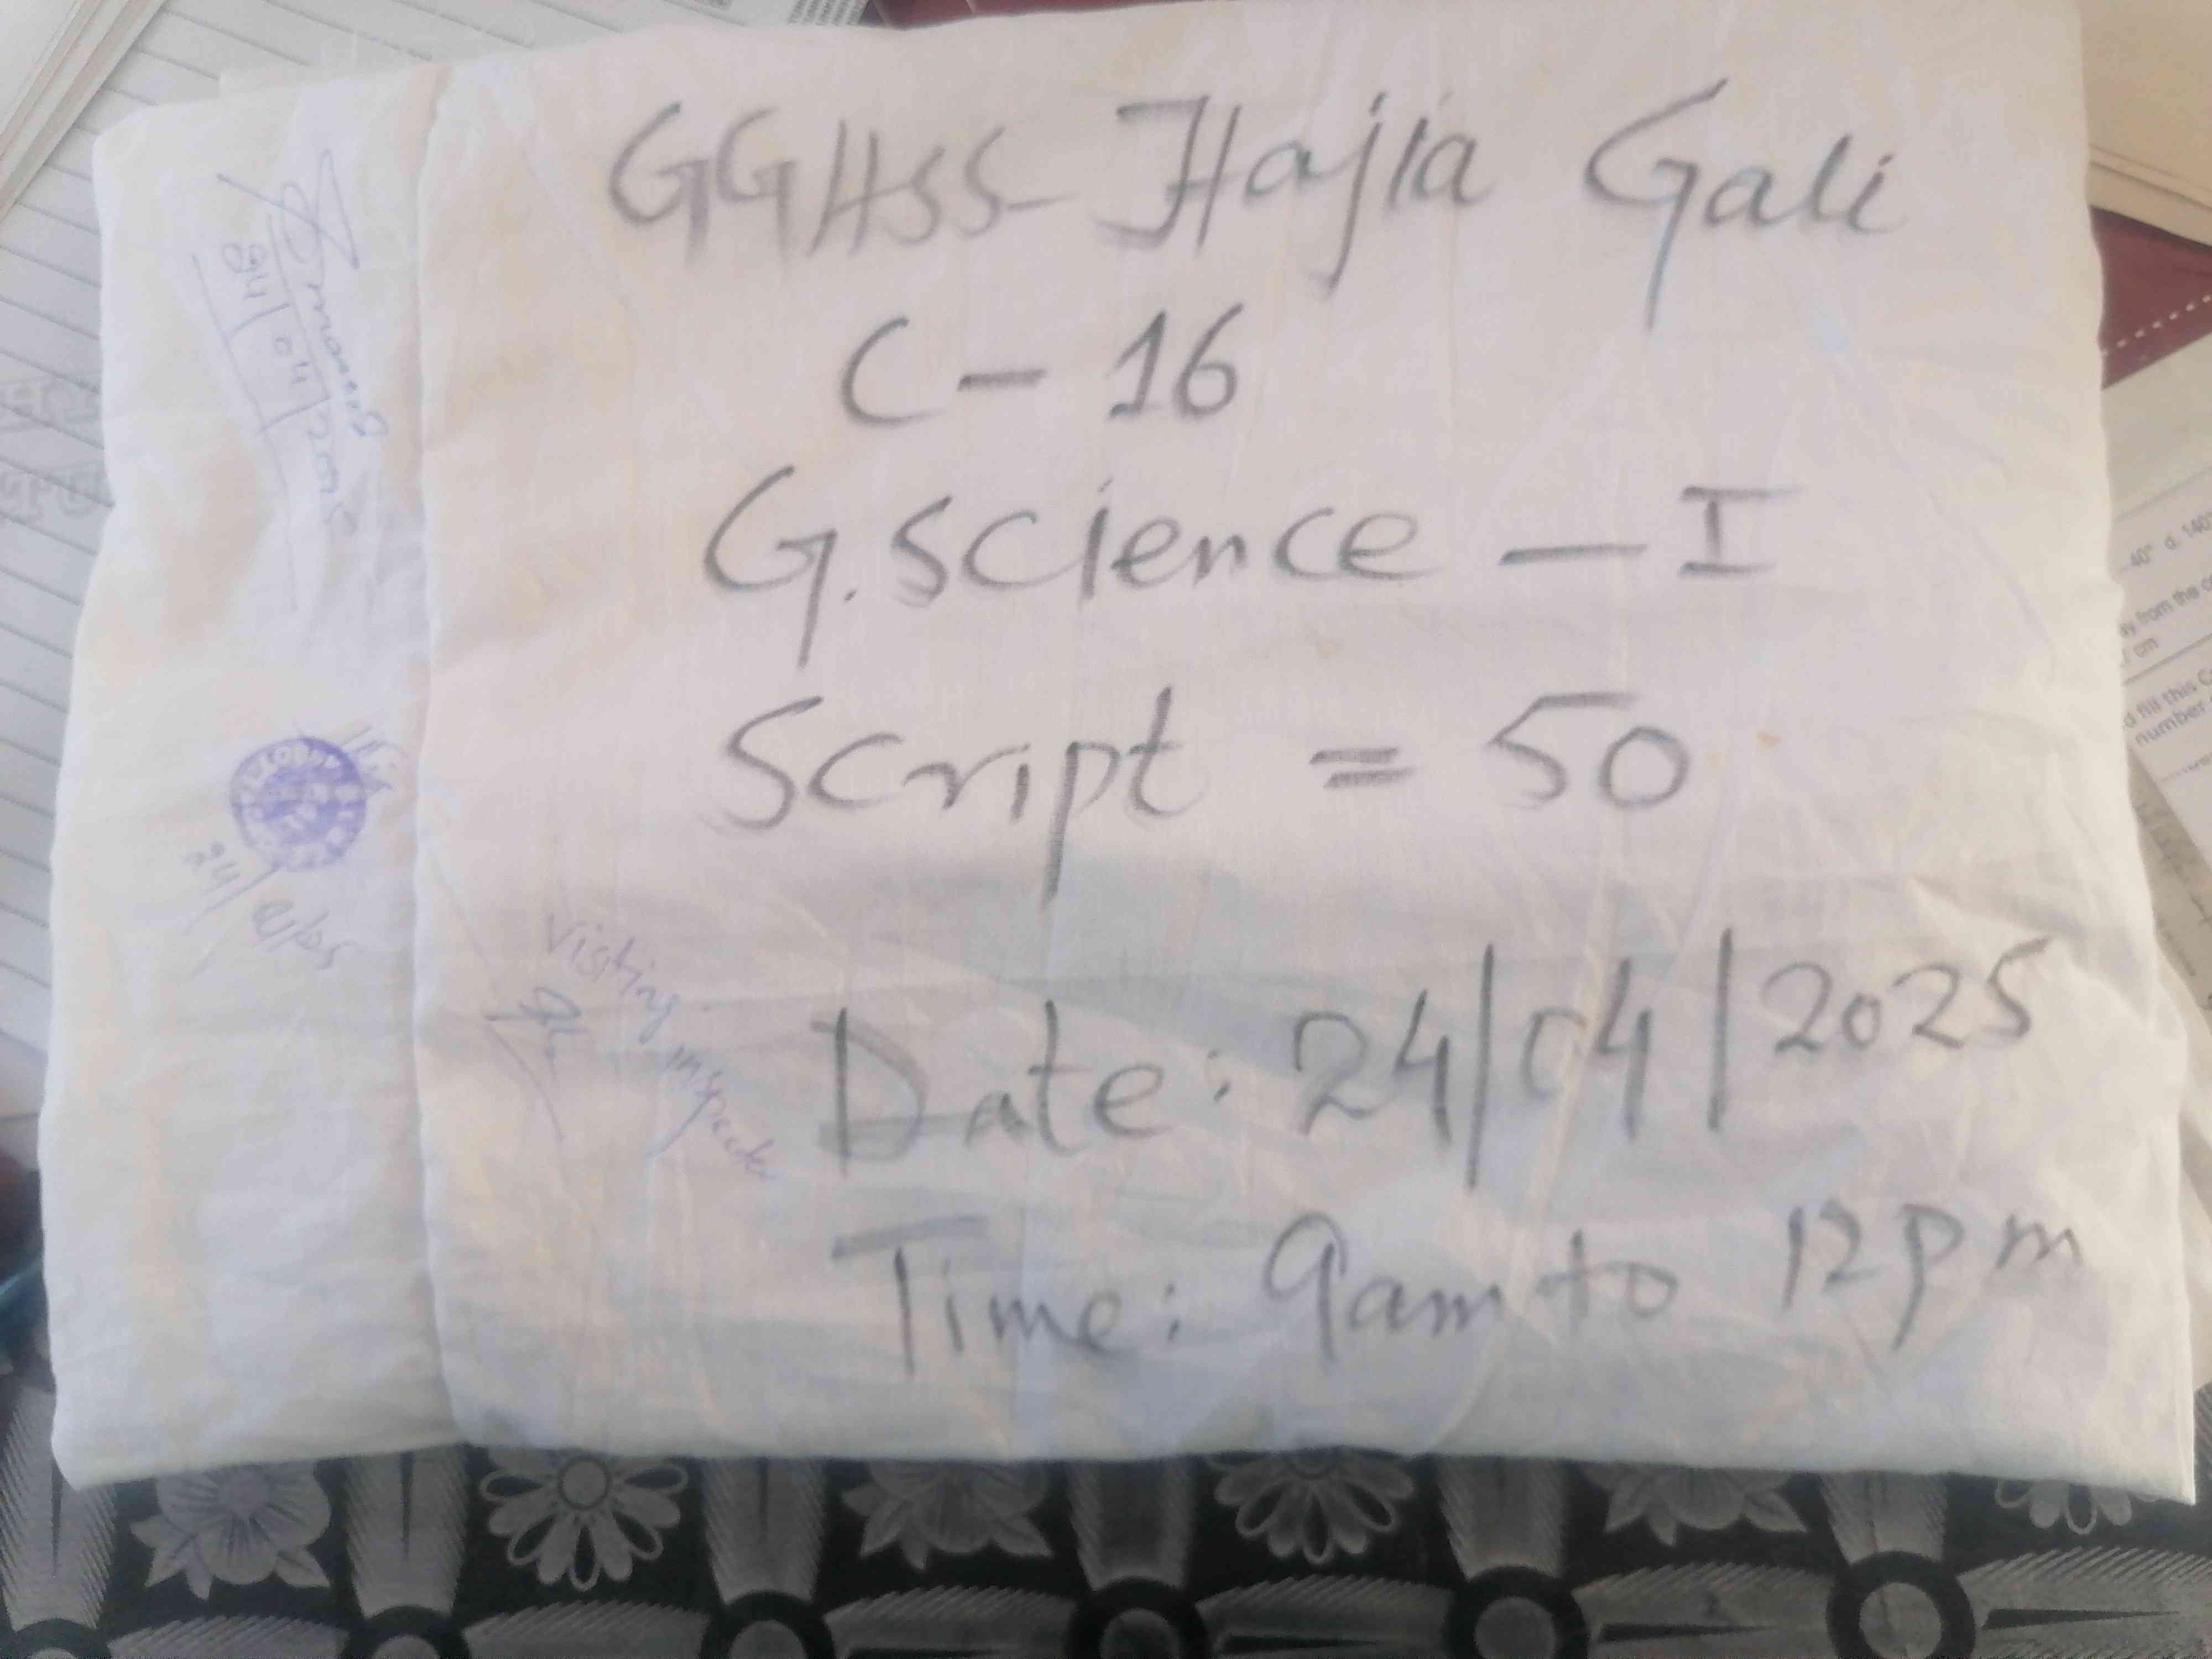 GGHSS Hajia Gali
C - 16
G.Science - I
Script = 50
Date: 24/04/2025
Time: 9am to 12pm
Visiting inspector
24/04/2025
40° d. 140°
y from the
cm
d fill this
number